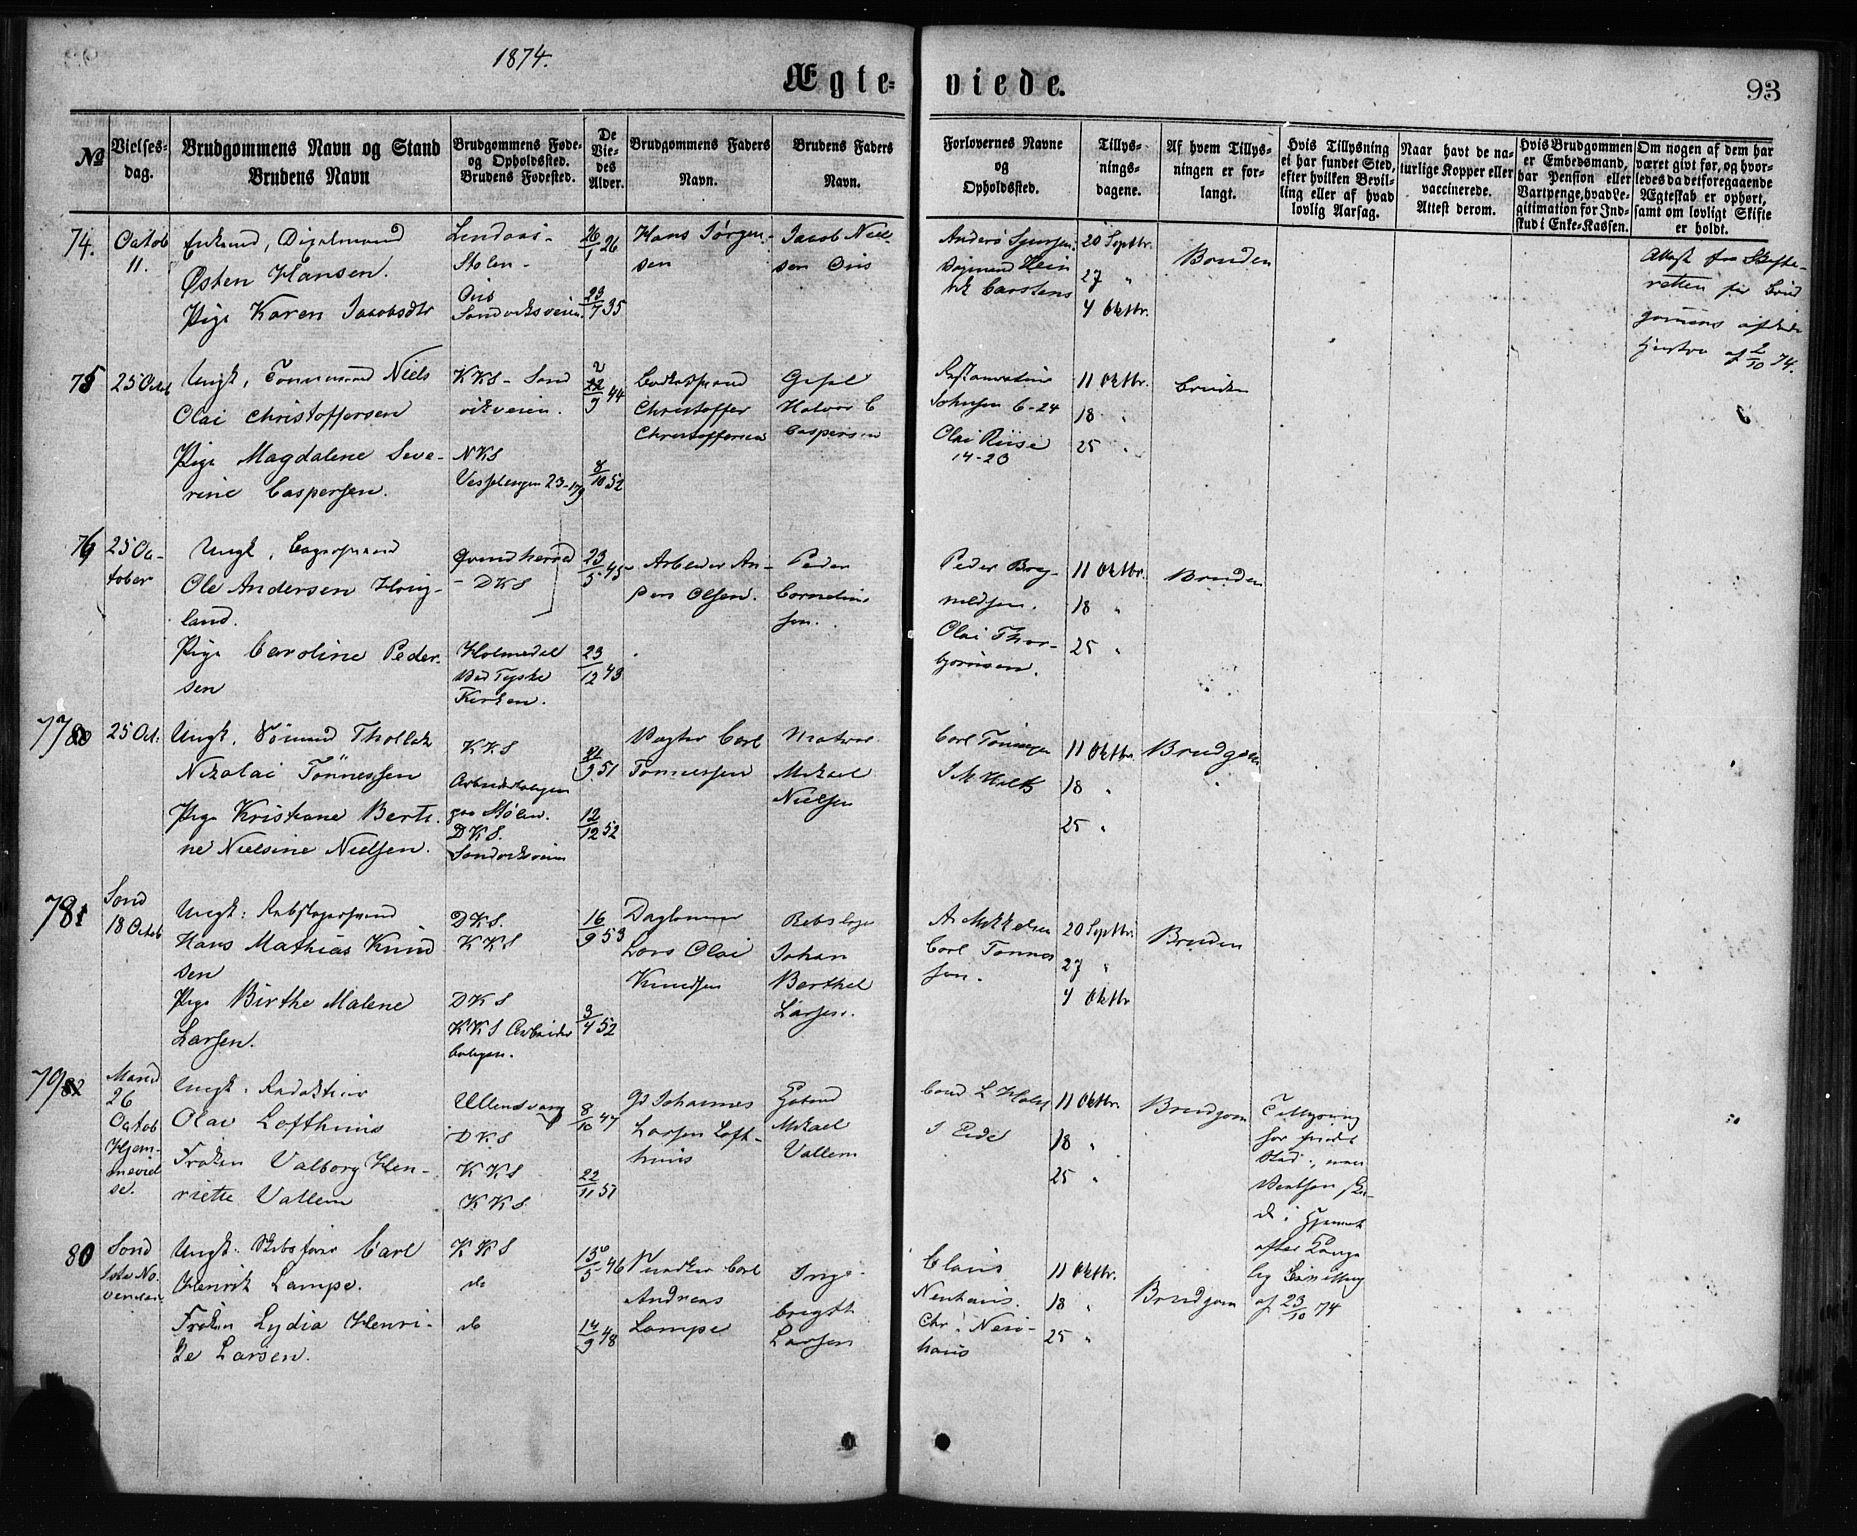 1874.
Ægte-
viede.
93
No
Vielses-
dag.
Brudgommens Navn og Stand
Brudens Navn
Brudgommens Føde-
og Opholdssted.
Brudens Fødested.
De
Vie-
des
Alder.
Brudgommens Faders
Navn.
Brudens Faders
Navn.
Forlovernes Navne
og
Opholdssted.
Tillys-
nings-
dagene.
Af hvem Tillys-
ningen er for-
langt.
Hvis Tillysning
ei har fundet Sted,
efter hvilken Bevil-
ling eller af hvad
lovlig Aarsag.
Naar havt de na-
turlige Kopper eller
vaccinerede.
Attest derom.
Hvis Brudgommen
er Embedsmand,
har Pension eller
Vartpenge, hvad Le-
gitimation for Ind-
skud i Enke-Kassen.
Om nogen af dem har
været givt før, og hvor-
ledes da det foregaaende
Ægteskab er ophørt,
samt om lovligt Skifte
er holdt.
74.
Octob
11.
Enkemd,
Østen Hansen.
Pige Karen Jacobsdtr
Lindaas-
Stølen-
Sandviksveien.
26/1 26
23/7 35
Hans Jörgen-
sen
Jacob Niel-
sen
Anders
Carstens
20 Septbr.
27 "
4 Oktbr.
Bruden
Attest fra Skifte-
retten for Brud
gomens afdøde
Hustru af 2/10 74.
75
25 Octob
Ungk, Tømmermd Niels
Olai Christoffersen
Pige Magdalene Seve-
rine Caspersen.
KKS - Sand
viksveien.
NKS
23-179
22/9 44
8/10 52
Christoffer
Christoffersen
Halvor C
Caspersen
Johnsen 6-24
Olai Riise
14-23
11 Oktbr.
18 "
25 "
Bruden
76
25 Oc-
tober
Ungk,
Ole Andersen Houg-
land.
Pige Caroline Peder-
sen
Qvindherred
- DKS
Holmedal
Ved Tyske
Kirken.
23/5 45
23/12 43
Arbeider An-
ders Olsen.
Peder
Cornelius
sen.
Peder
Olai Thor-
bjørnsen.
11 Oktbr.
18 "
25 "
Bruden
77
25 Oct.
Ungk, Sömand Thollak
Nikolai Tönnessen
Pige Kristiane Berti-
ne Nielsine Nielsen.
KKS
Arbeiderboligen
paa Stølen.
DKS.
Sandviksveien
51
12/12 52
Vægter Carl
Tønnessen
Matros
Mikael
Nielsen
Carl Tönnesen
11 Oktbr.
18 "
25 "
Brudgom
78
Sønd
18 Octob
Ungk: Rebslagersvend
Hans Mathias Knud
sen
Pige Birthe Malene
Larsen.
DKS.
KKS
DKS
KKS Arbeider
boligen.
16/9 53
3/4 52
Lars Olai
Knudsen
Rebslager
Johan
Berthel
Larsen.
A. Mikkelsen
Carl Tønnes
sen.
20 Septbr.
27 "
4 Oktbr
Bruden
79
Mand
26
Octob
Hjem-
meviel
se.
Ungk. Redaktør
Olav Lofthuus
Frøken Valborg Hen-
riette Vallem
Ullensvang
DKS
KKS
KKS
8/10 47
22/11 51
Johannes
Larsen Loft-
huus
Mikael
Vallem
Cand L Holst
J Eide
11 Oktbr.
18 "
25 "
Brudgom
Tillysning
har fundet
Sted, men
Vielsen ske-
de i Hjemmet
efter Konge
lig Bevilling
af 23/10 74
80
Sønd
1ste No-
vember
Ungk. Skibsfører Carl
Henrik Lampe.
Frøken Lydia Henri-
ke Larsen.
KKS
do
do
13/5 46
14/9 48
Snedker Carl
Andreas
Lampe
Inge-
brigtt
Larsen
Claus
Neuhaus.
Chr. Neu-
haus
11 Oktbr.
18 "
25 "
Brudgom